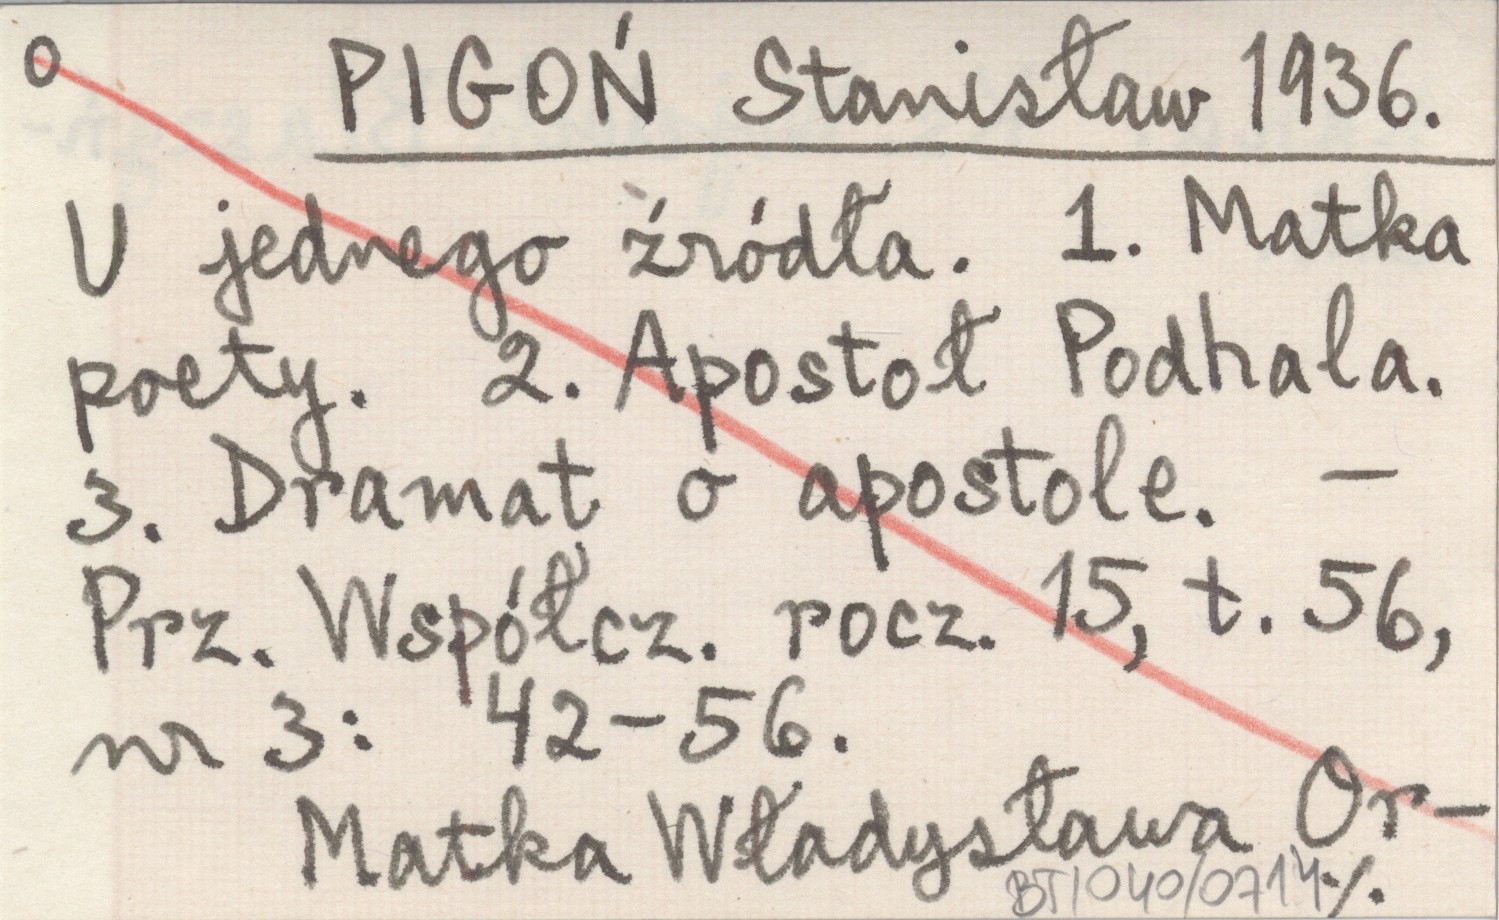 o PIGOŃ Stanisław 1936.
U jednego źródła. 1. Matka
poety. 2. Apostoł Podhala.
3. Dramat o apostole. –
Prz. Współcz. rocz. 15, t. 56,
nr 3: 42-56.
Matka Władysława Or-
BT/040/0714 ./.